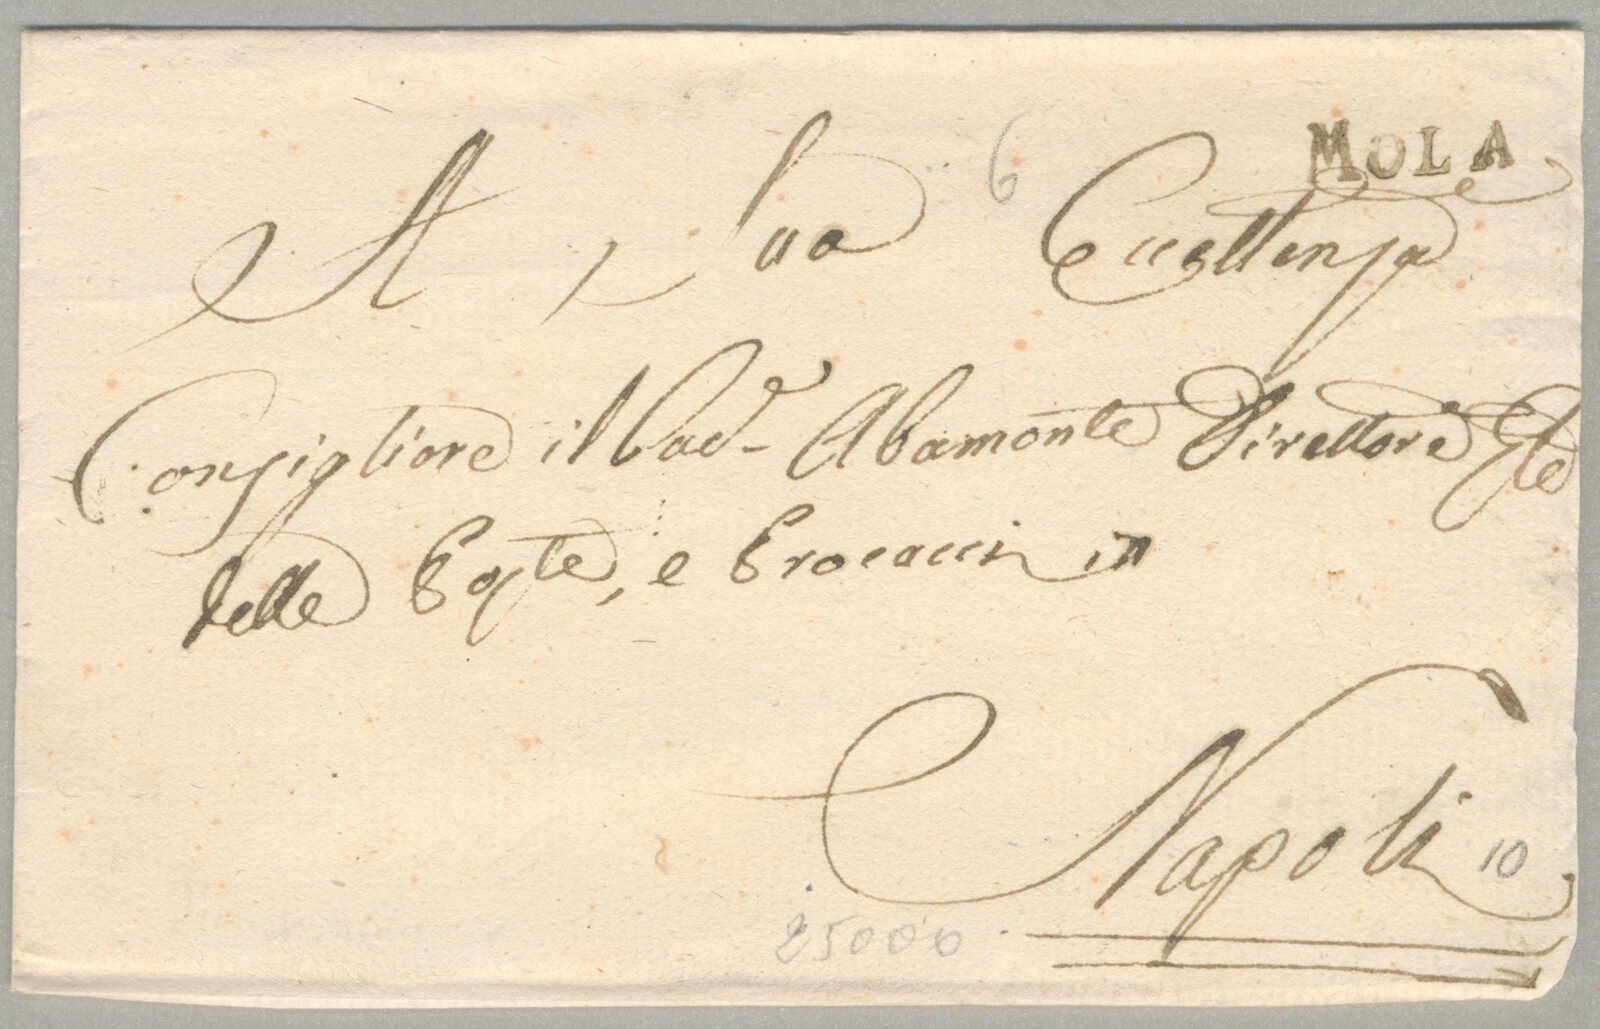 MOLA
6
A Sua Eccellenza
Consigliore il Cav.e Abamonte Direttore Gle
delle Poste, e Procacci in
Napoli
10
25000